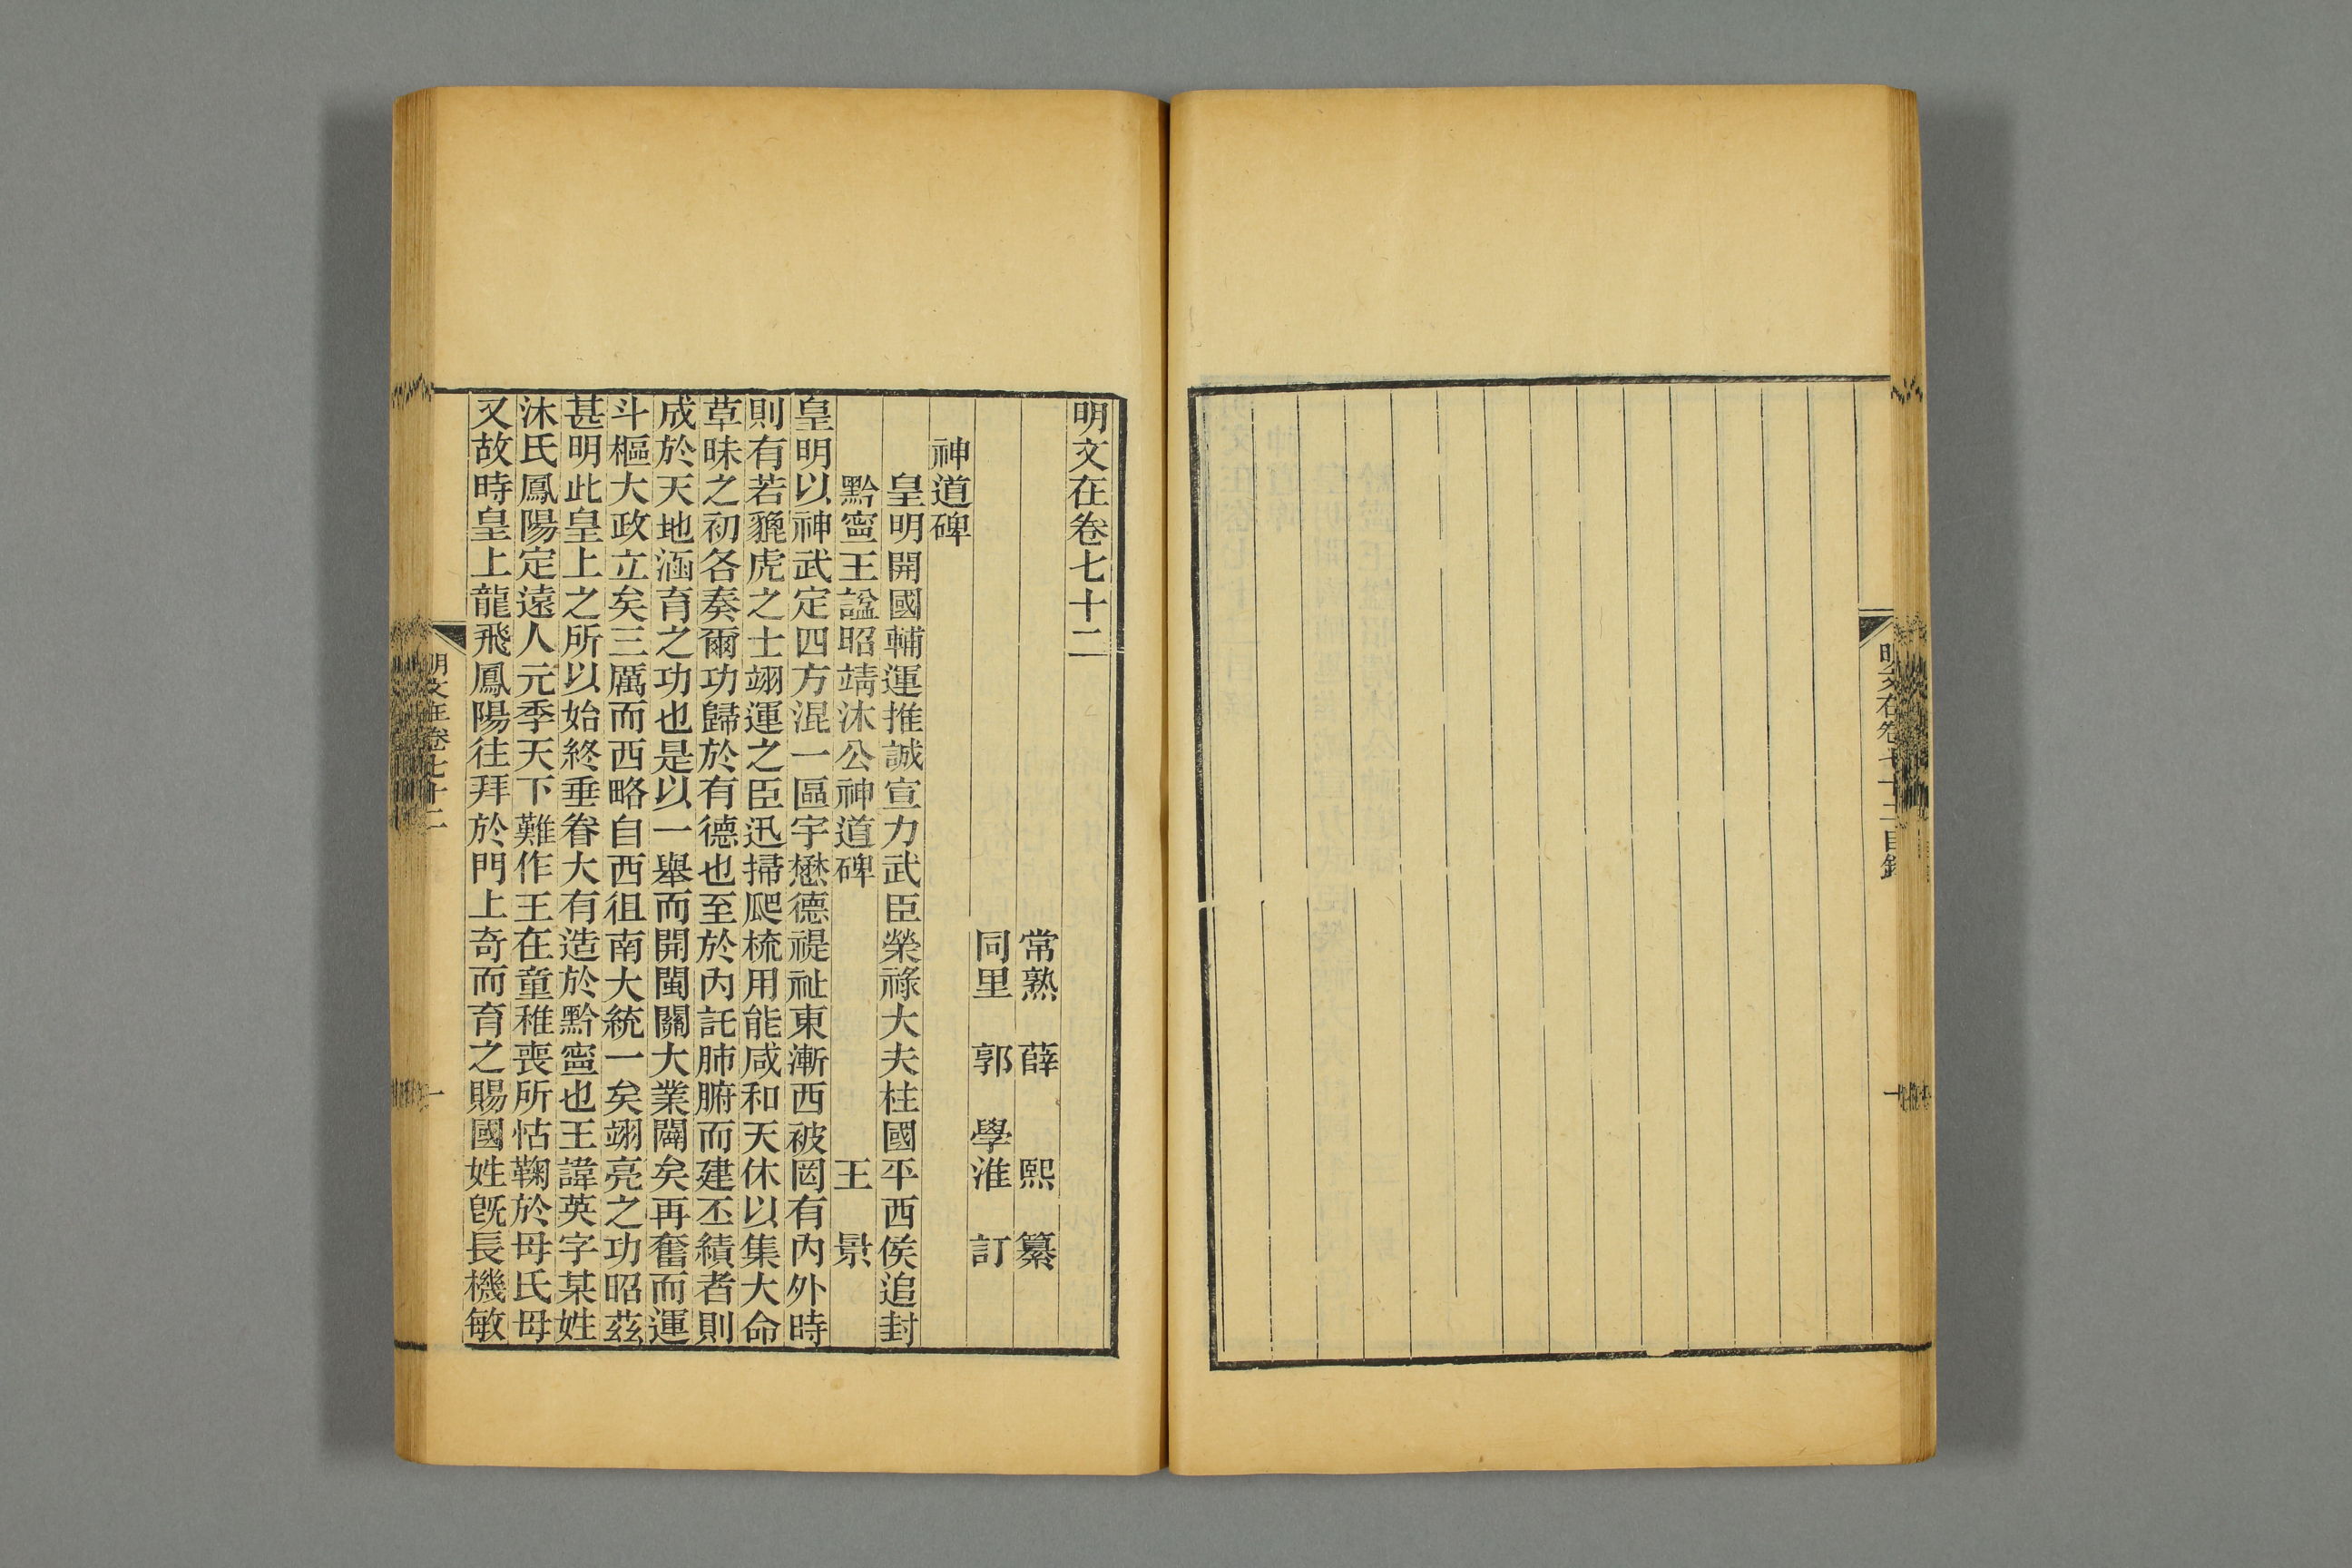 明文在卷七十二目錄
一
明文在卷七十二
常熟 薛 熙 纂
同里 郭 學淮 訂
神道碑
皇明開國輔運推誠宣力武臣榮祿大夫柱國平西侯追封
黔寧王諡昭靖沐公神道碑 王 景
皇明以神武定四方混一區宇懋德禔祉東漸西被罔有內外時
則有若貔虎之士翊運之臣迅掃爬梳用能咸和天休以集大命
草昧之初各奏爾功歸於有德也至於內託肺腑而建丕績者則
成於天地涵育之功也是以一舉而開閩關大業闡矣再奮而運
斗樞大政立矣三厲而西略自西徂南大統一矣翊亮之功昭茲
甚明此皇上之所以始終垂眷大有造於黔寧也王諱英字某姓
沐氏鳳陽定遠人元季天下難作王在童稚喪所怙鞠於母氏母
又故時皇上龍飛鳳陽往拜於門上奇而育之賜國姓旣長機敏
明文在卷七十二
一